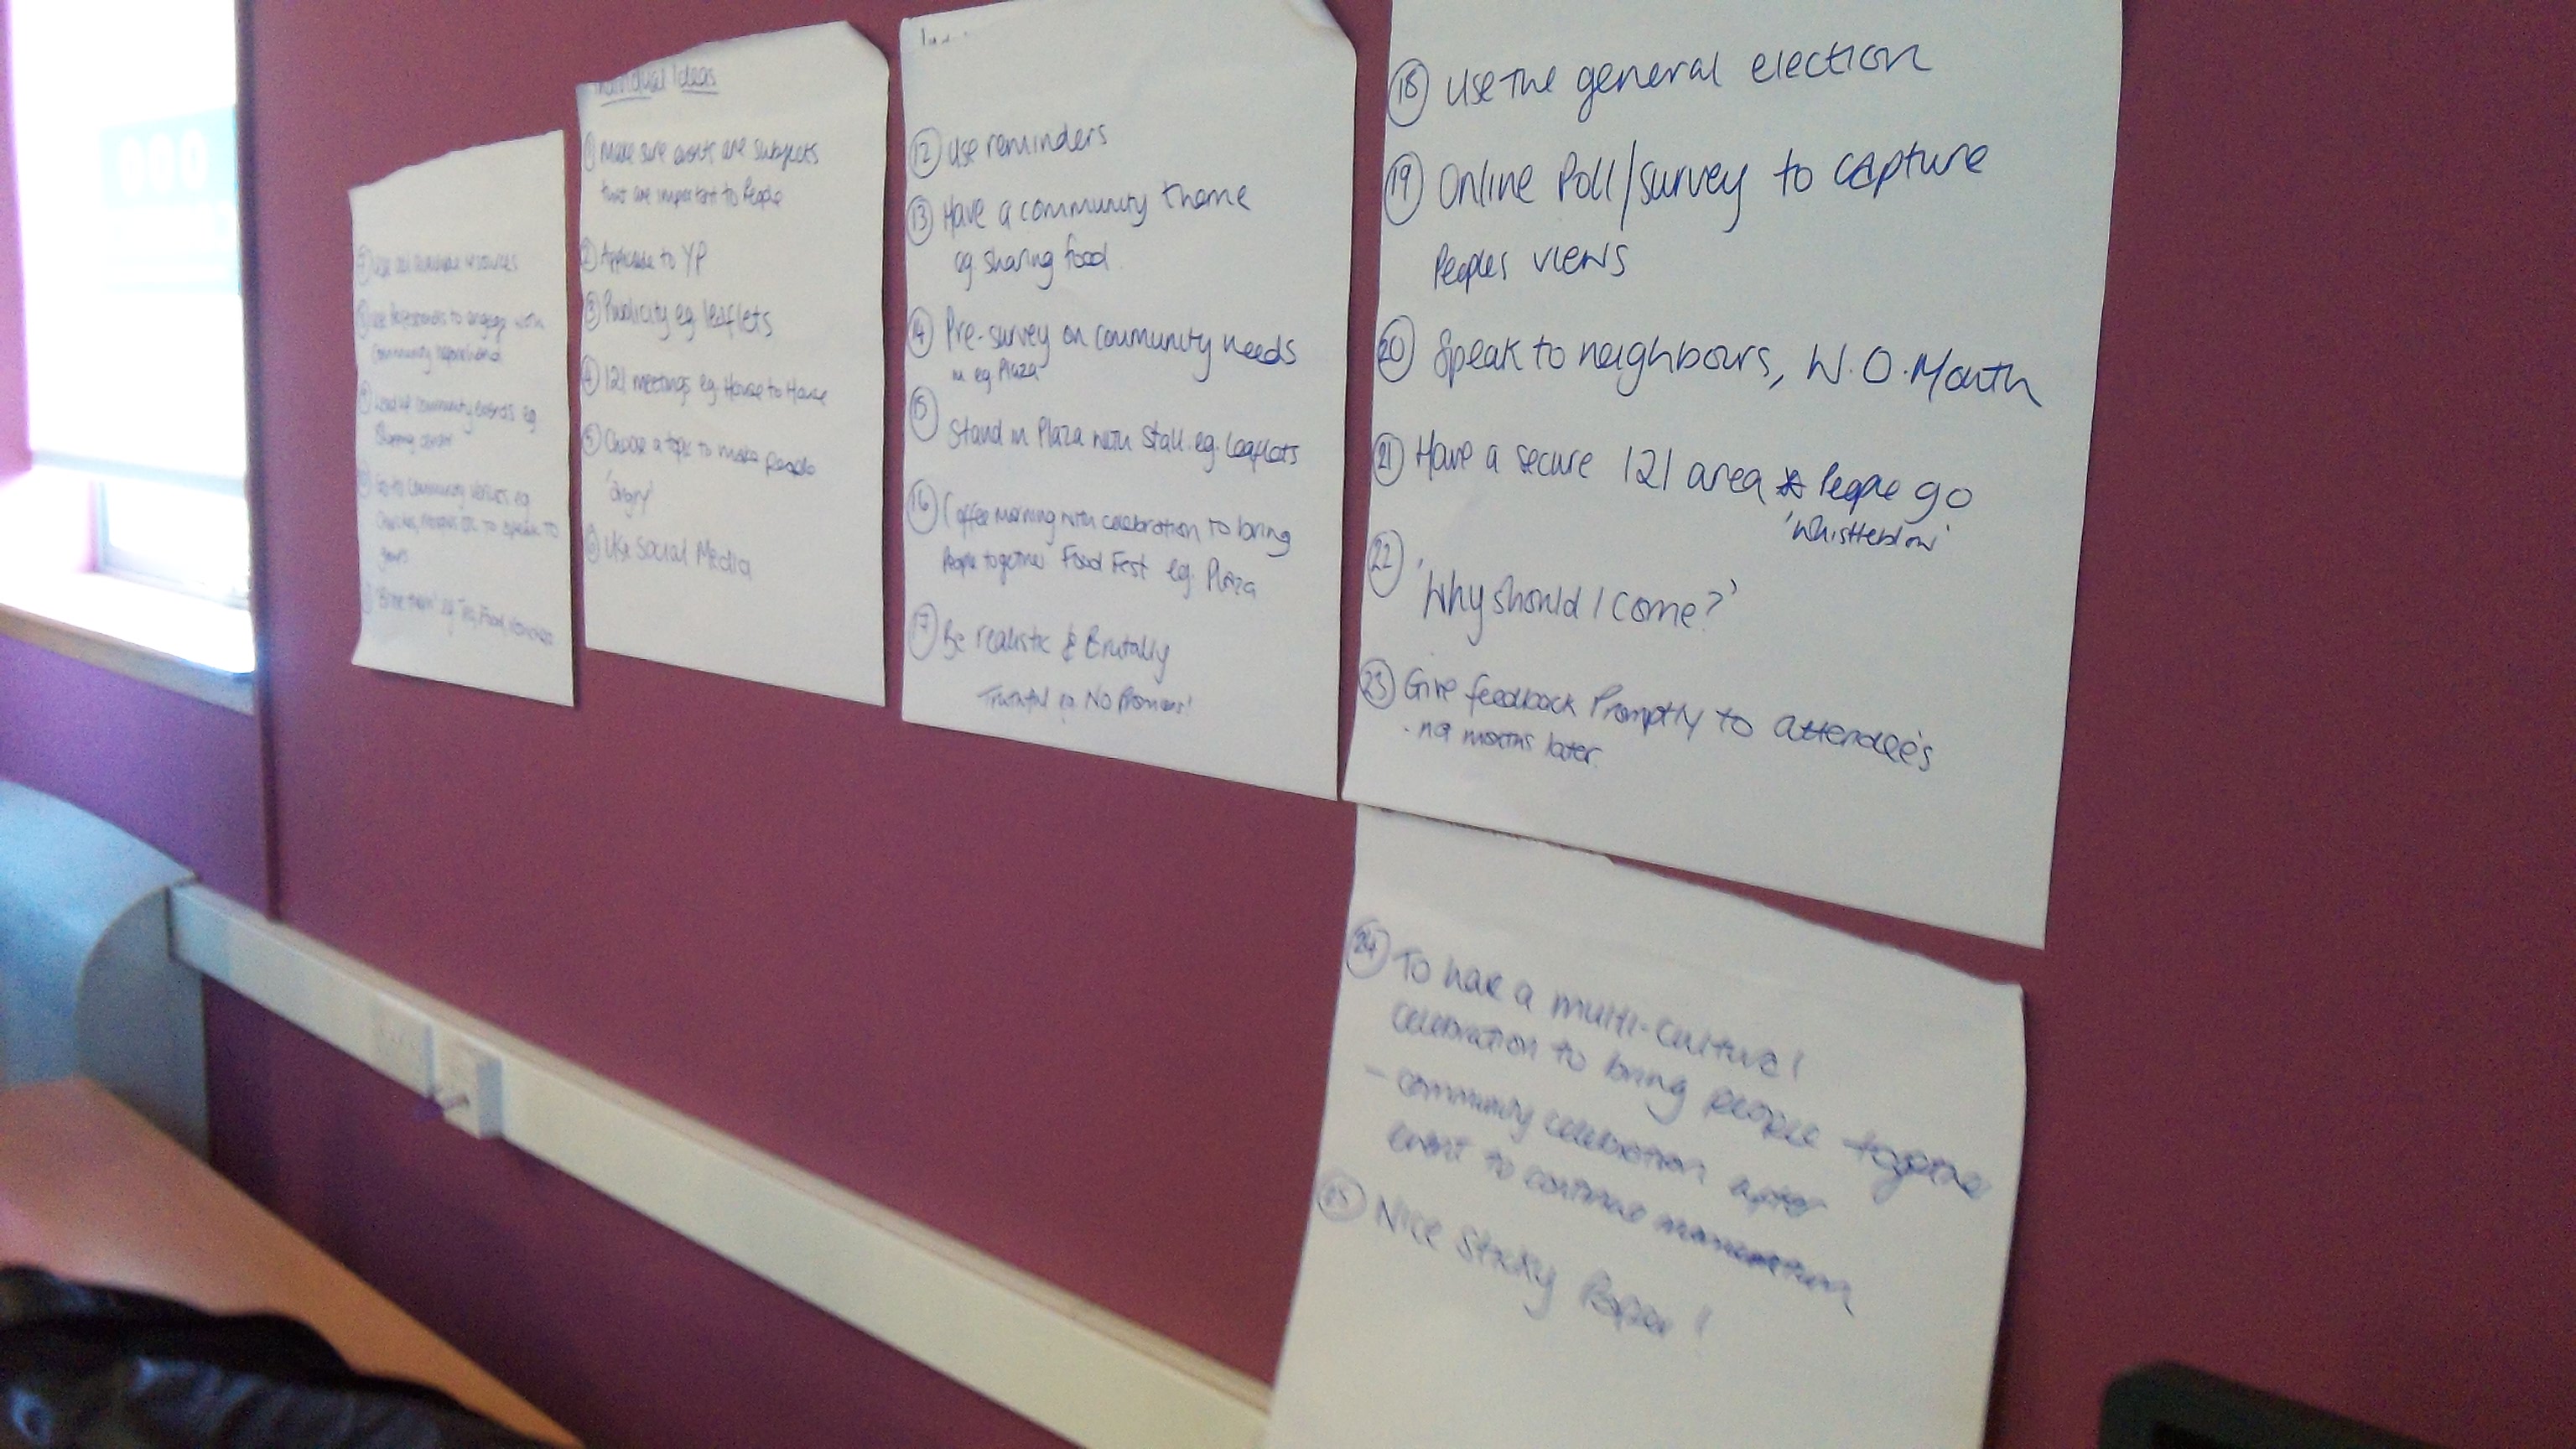 Use all available resources
Use Professionals to engage with
Community beforehand
Community
eg
Go to Community Venues eg
to speak to
eg Tea, Food,
Individual Ideas
① Make sure events are subjects
that are important to People
② Applicable to YP
③ Publicity eg leaflets
④ 121 meetings eg House to House
⑤ Choose a topic to make people
'angry'
⑥ Use Social Media
⑫ Use reminders
⑬ Have a community theme
eg. sharing food.
⑭ Pre-survey on community needs
in eg Plaza
⑮ Stand in Plaza with Stall. eg. leaflets
⑯ Coffee Morning with celebration to bring
People together Food Fest eg. Plaza
⑰ Be realistic & Brutally
Truthful eg No Promises!
⑱ Use the general election
⑲ Online Poll/survey to capture
Peoples views
⑳ Speak to neighbours, W.O.Mouth
㉑ Have a secure 121 area * People go
'Whistleblow'
㉒ 'Why should I come?'
㉓ Give feedback Promptly to attendee's
- not months later.
㉔ To have a multi-cultural
celebration to bring people together
- community celebration after
event to continue momentum
㉕ Nice Sticky Paper!